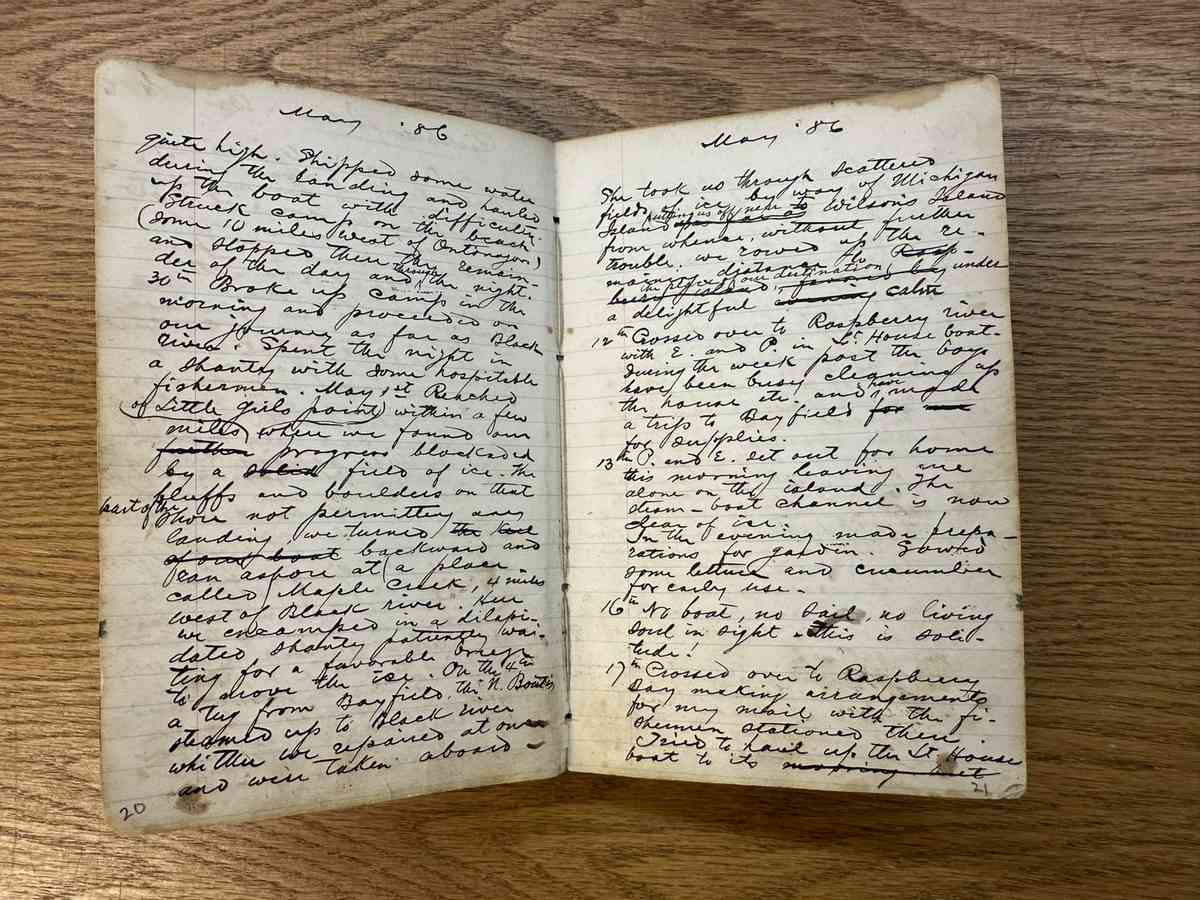 May '86
quite high. Shipped some water
during the landing and hauled
up the boat with difficulty.
Struck camp on the beach
(some 10 miles west of Ontonagon)
and stopped there the remain-
der of the day and through the night.
30th Broke up camp in the
morning and proceeded on
our journey as far as Black
river. Spent the night in
a shanty with some hospitable
fishermen. May 1st Reached
(of Little Girls point) within a few
miles where we found our
further progress blockaded
by a solid field of ice. The
bluffs and boulders on that
part of the
shore not permitting any
landing we turned the keel
of our boat backward and
ran ashore at a place
called Maple Creek, 4 miles
west of Black river. Here
we encamped in a dilapi-
dated shanty patiently wai-
ting for a favorable breeze
to move the ice. On the 4th
a tug from Bayfield, the N. Boutin
steamed up to Black river
whither we repaired at once
and were taken aboard
20
May '86
She took us through scattered
fields of ice by way of Michigan
Island putting us off near to Wilsons Island
from whence, without further
trouble, we rowed up the re-
maining distance to Rasp-
the place of our destination, under
a delightful calm
12th Crossed over to Raspberry river
with E. and P. in Lt House boat-
During the week past the boys
have been busy cleaning up
the house etc. and have made
a trip to Bayfield for
for supplies.
13th P. and E. set out for home
this morning leaving me
alone on the island. The
steam-boat channel is now
clear of ice.
In the evening made prepa-
rations for garden. Sowed
some lettuce and cucumber
for early use.
16th No boat, no sail, no living
soul in sight. This is soli-
tude!
17th Crossed over to Raspberry
bay making arrangements
for my mail with the fi-
shermen stationed there.
Tried to haul up the Lt House
boat to its mooring but
21